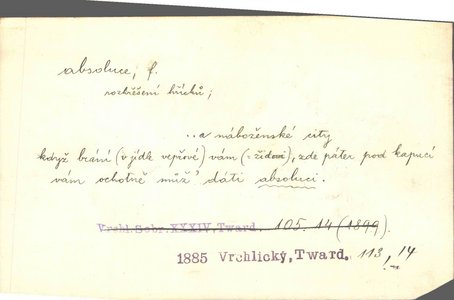 absoluce, f.
rozhřešení hříchů;
...a náboženské city
když brání (v jídle vepřové) vám (: židovi), zde páter pod kapucí
vám ochotně můž' dáti absoluci.
Vrchl. Sebr. XXXIV, Tward. 105. 14 (1899).
1885 Vrchlický, Tward. 113, 14